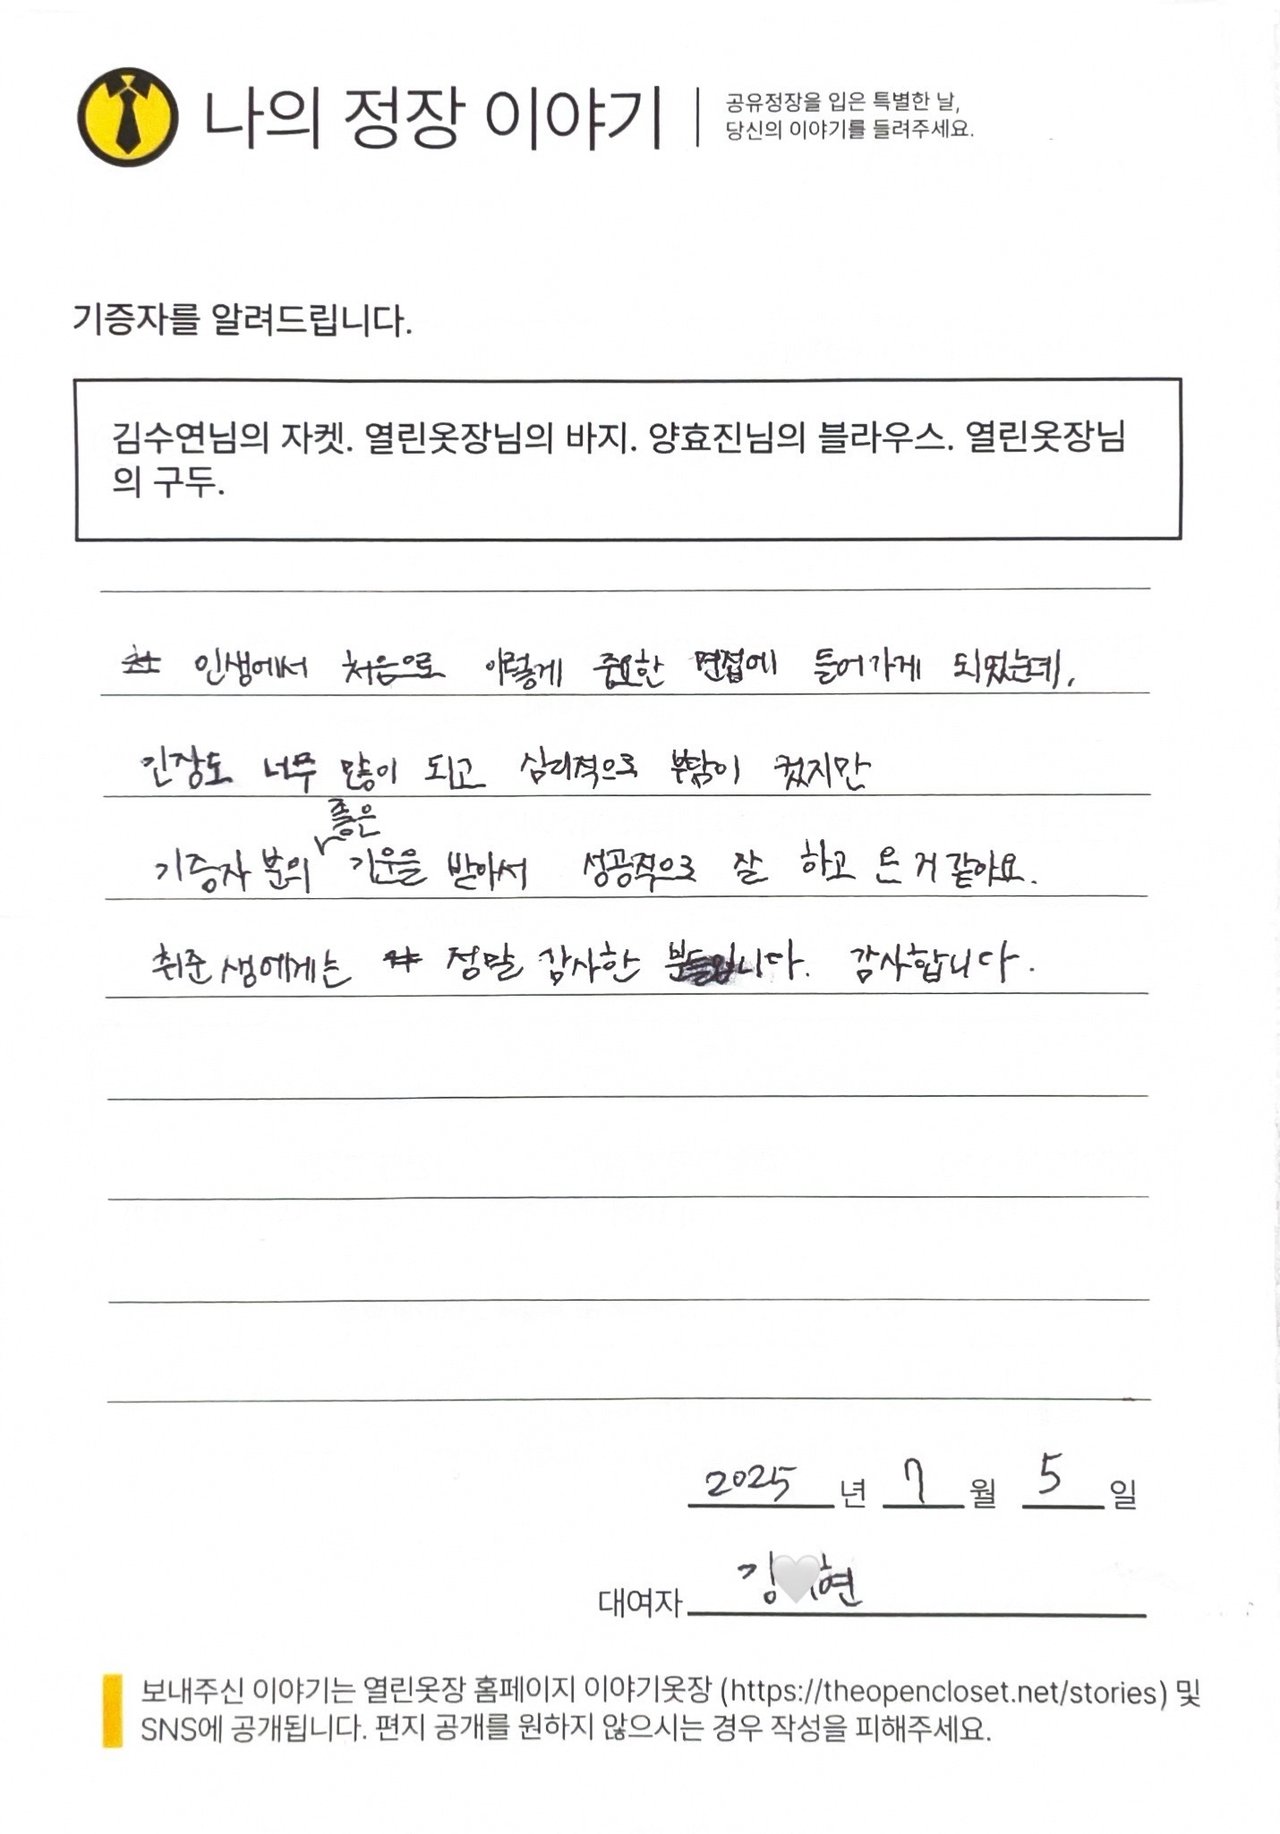 나의 정장 이야기
공유정장을 입은 특별한 날,
당신의 이야기를 들려주세요.
기증자를 알려드립니다.
김수연님의 자켓. 열린옷장님의 바지. 양효진님의 블라우스. 열린옷장님
의 구두.
인생에서 처음으로 이렇게 중요한 면접에 들어가게 되었는데,
긴장도 너무 많이 되고 심리적으로 부담이 컸지만
기증자 분의 좋은 기운을 받아서 성공적으로 잘 하고 온 거 같아요.
취준생에게는 정말 감사한 분들입니다. 감사합니다.
2025 년 7 월 5 일
대여자 김🤍현
보내주신 이야기는 열린옷장 홈페이지 이야기옷장 (https://theopencloset.net/stories) 및
SNS에 공개됩니다. 편지 공개를 원하지 않으시는 경우 작성을 피해주세요.